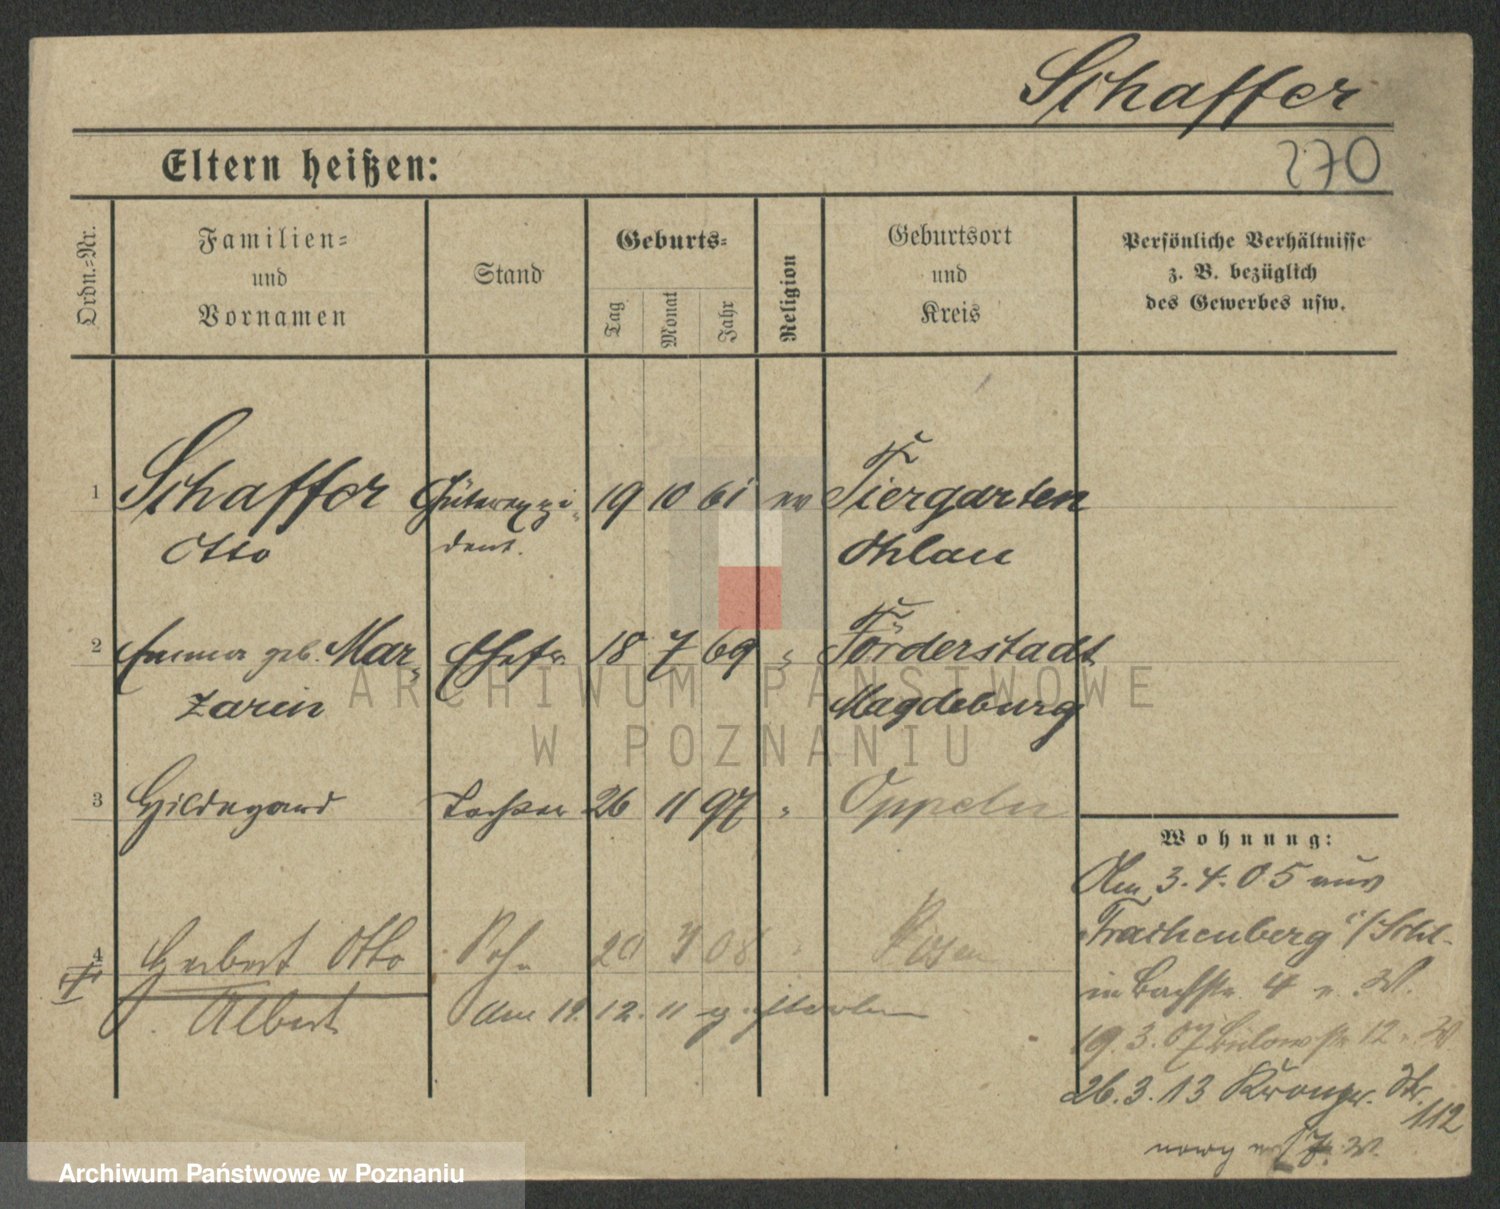 Schaffer
270
Eltern heißen:
Ordn.-Nr.
Familien-
und
Vornamen
Stand
Geburts-
Tag
Monat
Jahr
Religion
Geburtsort
und
Kreis
Persönliche Verhältnisse
z. B. bezüglich
des Gewerbes usw.
1 Schaffer 19 10 61 ev Tiergarten
Otto Ohlau
2 Emma geb. Mar- Ehefr. 18 7 69 " Förderstadt
zarin Magdeburg
3 Hildegard Tochter 26 11 97 " Oppeln
4 Herbert Otto Sohn 20 08 " Posen
Albert am 19. 12. 11 gestorben
Wohnung:
Am 3.4.05 aus
Trachenberg i/Schl-
in Bachstr. 4 W.
19.3.07 Bülowstr 12 W
26.3.13 Kronpr. Str.
112
W.
ARCHIWUM PAŃSTWOWE
W POZNANIU
Archiwum Państwowe w Poznaniu